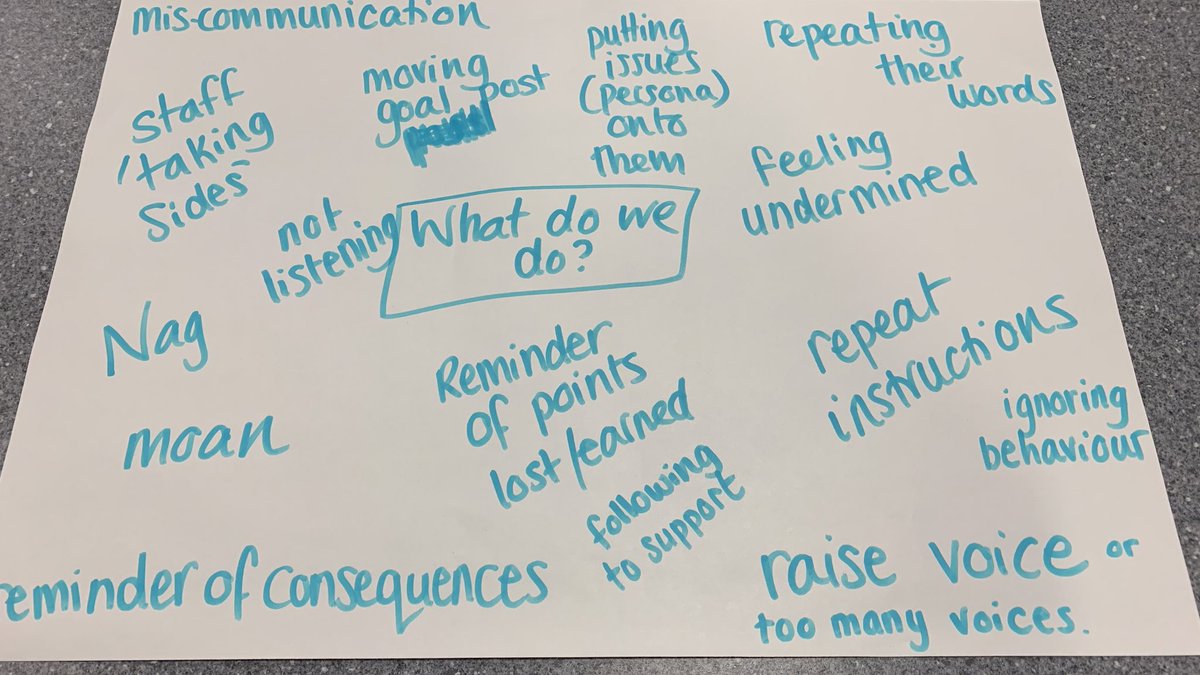 mis-communication
staff
'taking
sides'
moving
goal post
putting
issues
(persona)
onto
them
repeating
their
words
feeling
undermined
not
listening
What do we
do?
Nag
moan
Reminder
of points
lost/earned
repeat
instructions
ignoring
behaviour
following
to support
reminder of consequences
raise voice or
too many voices.